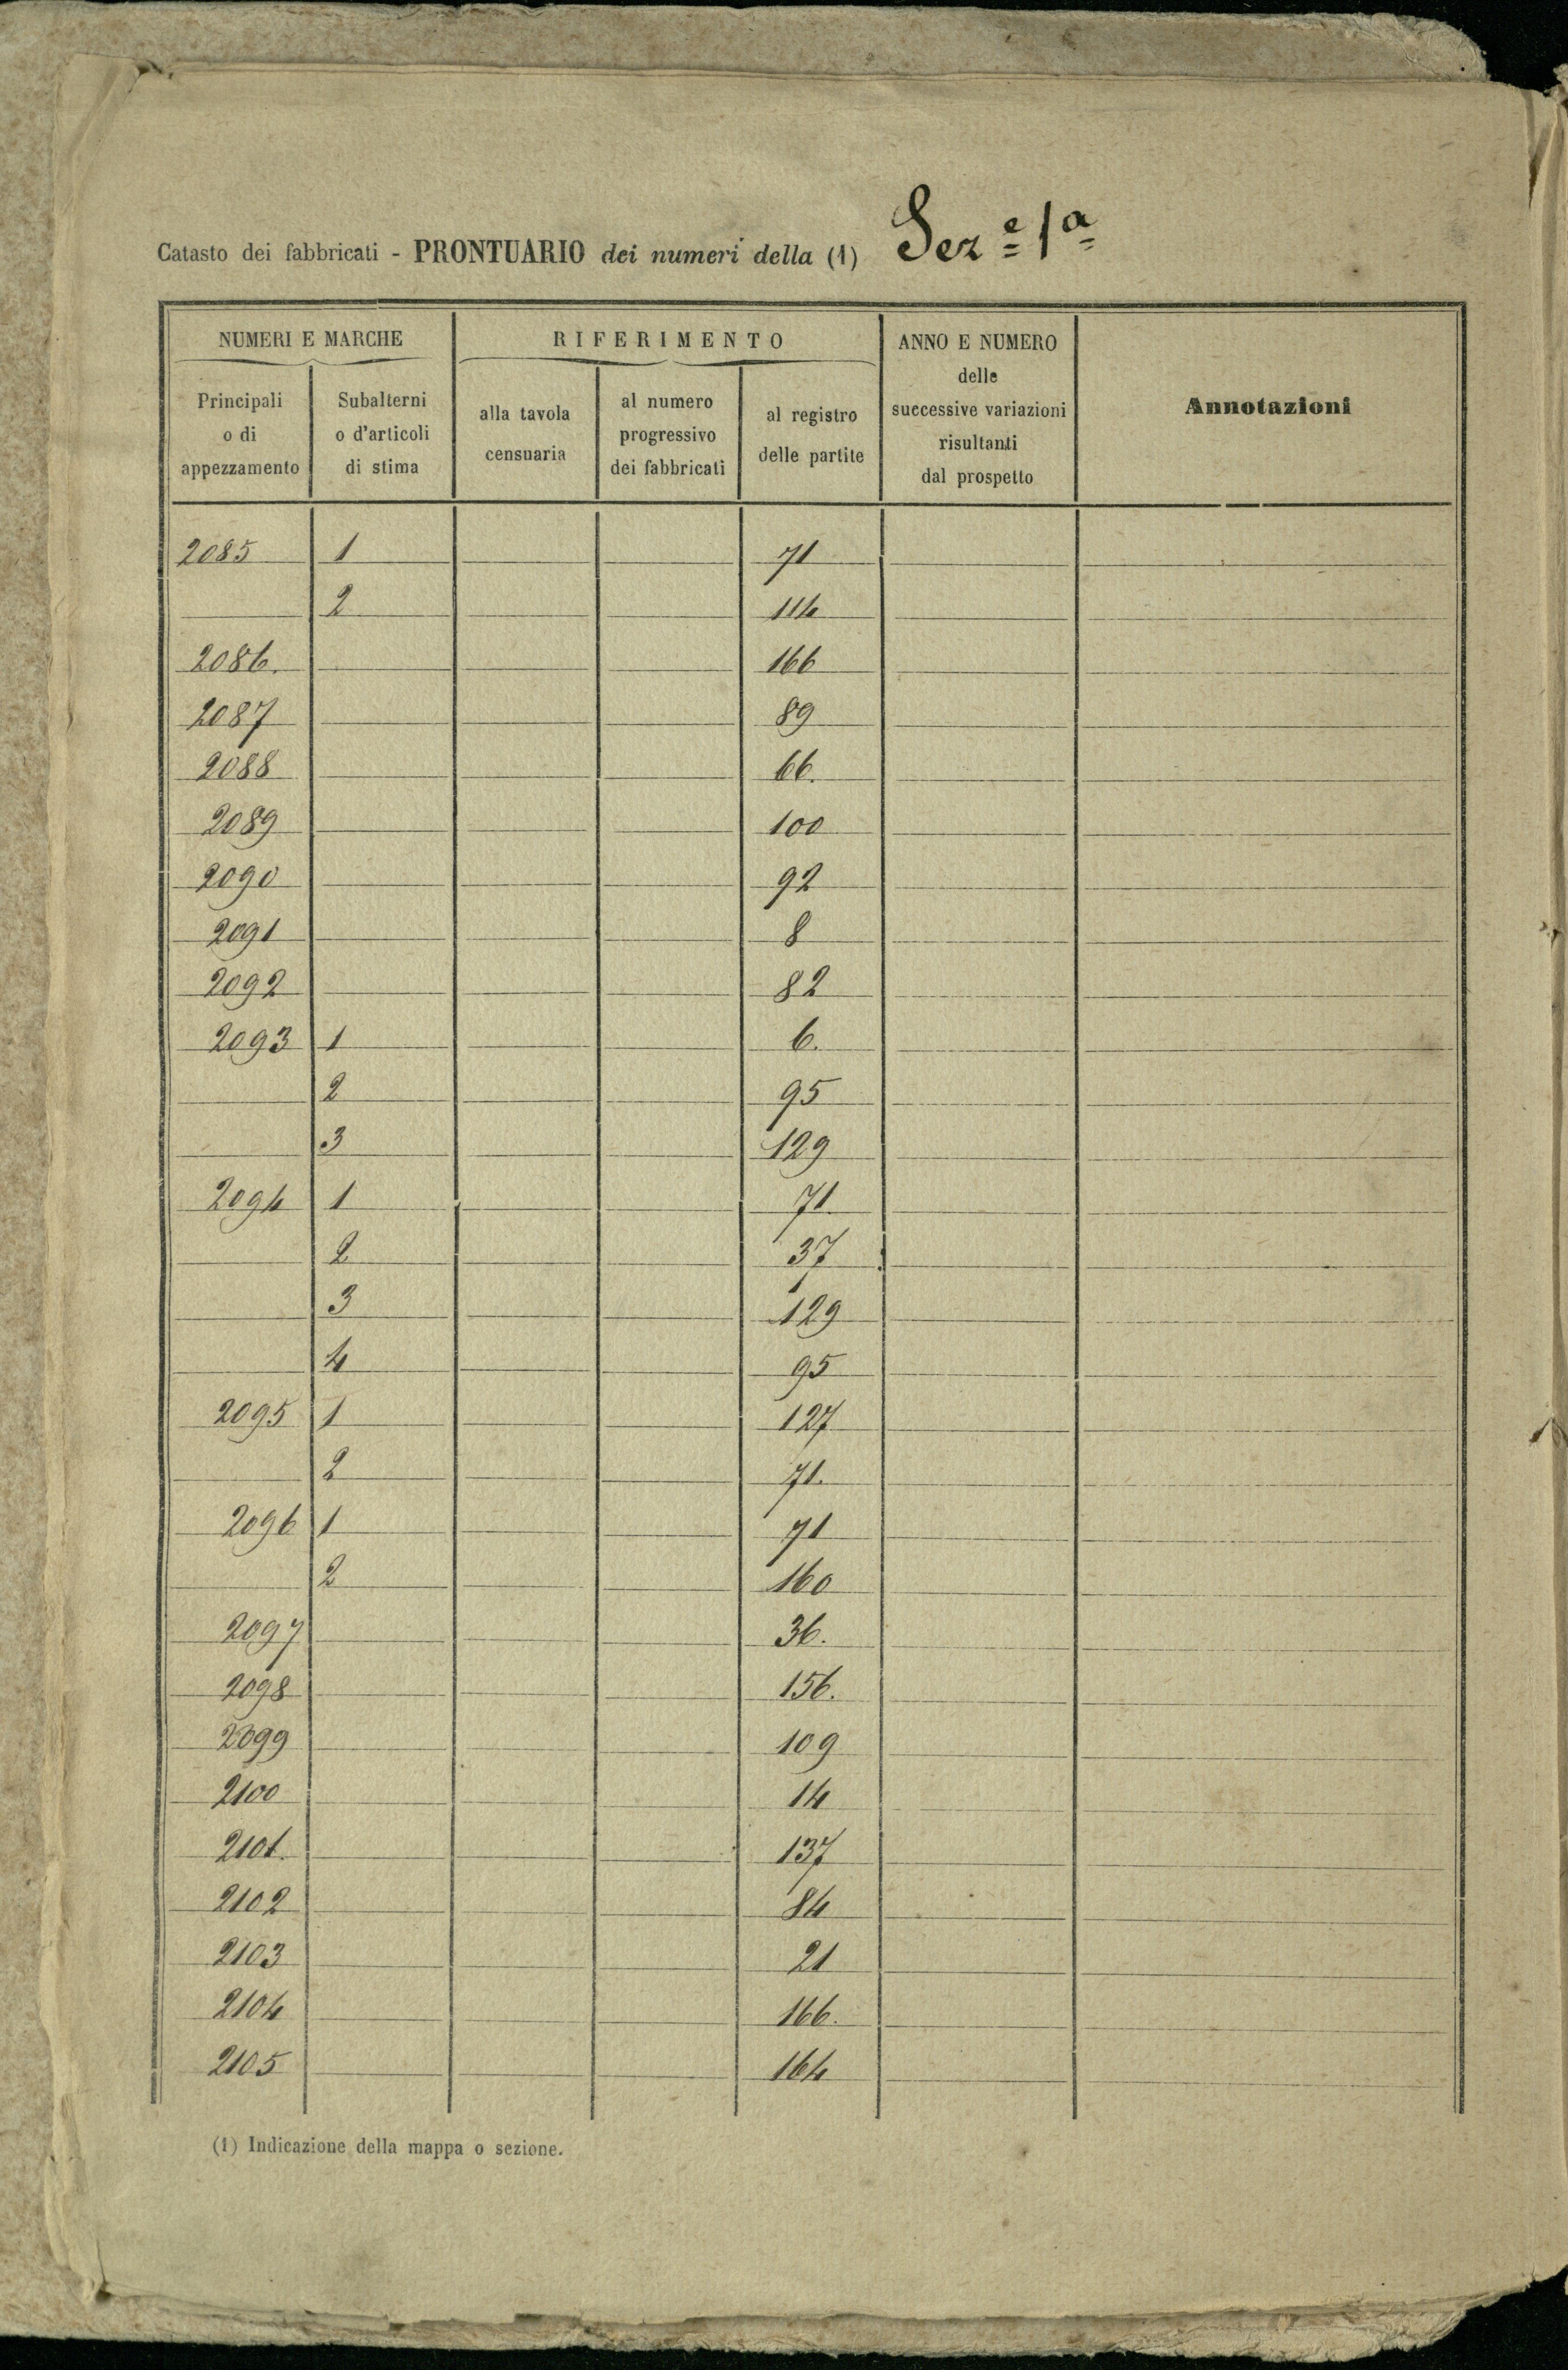 Catasto dei fabbricati - PRONTUARIO dei numeri della (1) Sez.e 1a
NUMERI E MARCHE
RIFERIMENTO
ANNO E NUMERO
delle
successive variazioni
risultanti
dal prospetto
Annotazioni
Principali
o di
appezzamento
Subalterni
o d'articoli
di stima
alla tavola
censuaria
al numero
progressivo
dei fabbricati
al registro
delle partite
2085 1 71
2 114
2086. 166
2087 89
2088 66.
2089 100
2090 92
2091 8
2092 82
2093 1 6.
2 95
3 129
2094 1 71.
2 37
3 129
4 95
2095 1 127
2 71.
2096 1 71
2 160
2097 36.
2098 156.
2099 109
2100 14
2101. 137
2102 84
2103 21
2104 166.
2105 164
(1) Indicazione della mappa o sezione.